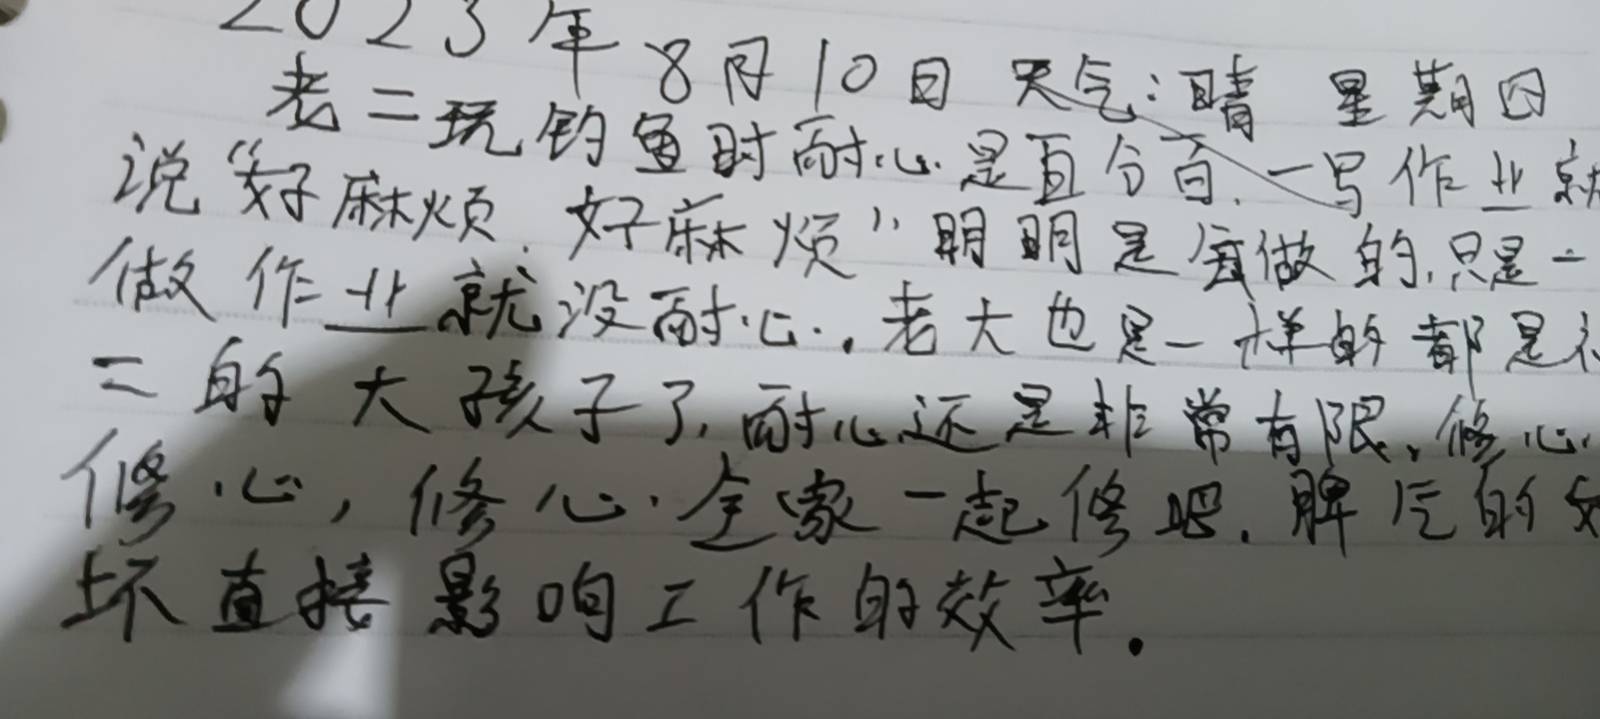 2023年8月10日 天气:晴 星期四
老二玩钓鱼时耐心是百分百.一写作业就
说“好麻烦.好麻烦”明明是会做的.只是一
做作业就没耐心.老大也是一样的都是
二的大孩子了,耐心还是非常有限.修心.
修心,修心.全家一起修吧.脾气的好
坏直接影响工作的效率.